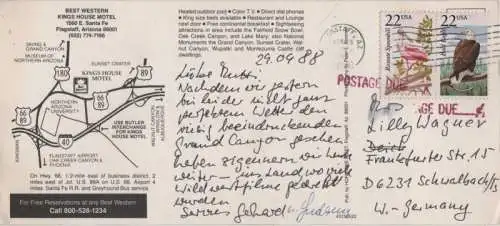 BEST WESTERN
KINGS HOUSE MOTEL
1560 E. Santa Fe
Flagstaff, Arizona 86001
(602) 774-7186
GRAND CANYON
MUSEUM OF
NORTHERN ARIZONA
180
SUNSET CRATER
KINGS HOUSE
MOTEL
89
66
89
NORTHERN
ARIZONA
UNIVERSITY
USE BUTLER
INTERCHANGE
FOR KINGS
HOUSE MOTEL
66
89
40
On Hwy. 66, 1.9-mile east of business district, 2
miles west of Jct. U.S. 89A on U.S. 66. 2 miles at
Santa Fe R.R. and Greyhound Bus service.
For Free Reservations at any Best Western
Call 800-528-1234
Heated outdoor pool • Color T.V. • Direct dial phones
• King size beds available • Restaurant and Lounge
next door • Free continental breakfast • Sightseeing
attractions in area include the Fairfield Snow Bowl,
Oak Creek Canyon, and Lake Mary; also National
Monuments the Grand Canyon, Sunset Crater, Walnut
Canyon, Wupatki and Montezuma Castle
29.09.88
Liebe Mutti!
Nachdem wir gestern
bei leider nicht ganz
perfektem Wetter den
riesig beeindruckenden
Grand Canyon gesehen
haben
weiter - ins Land, wo viele
Wildwestfilme gedreht
wurden
Servus Gerhard u.
22 USA
22 USA
Roseate Spoonbill
POSTAGE DUE
POSTAGE DUE
Lilly Wagner
Frankfurter Str. 15
D 6231 Schwalbach/S
W.-Germany